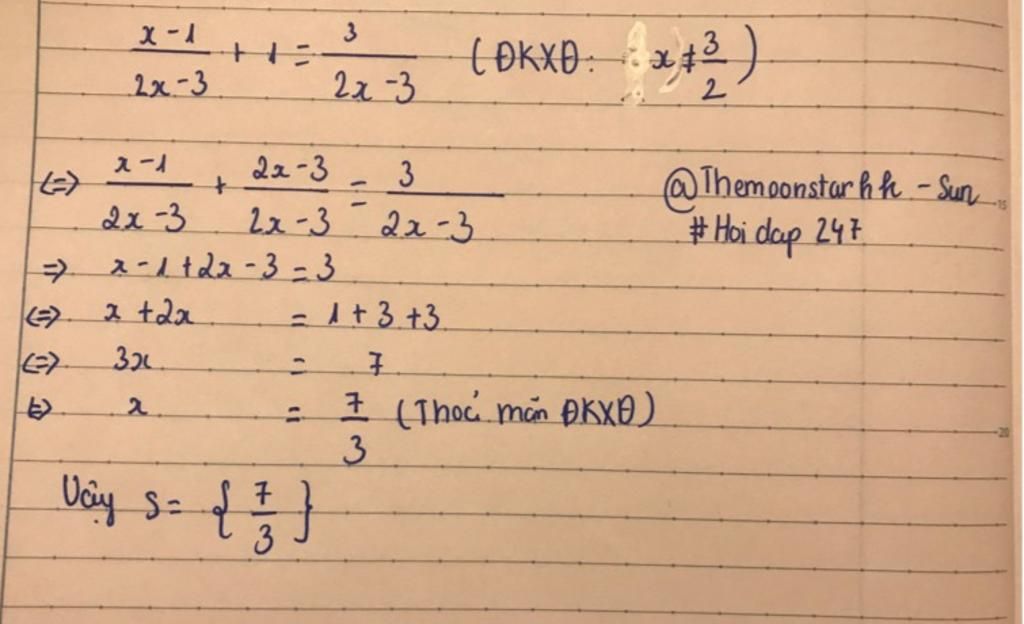 x-1/2x-3 + 1 = 3/2x-3 (ĐKXĐ: x ≠ 3/2)
<=> x-1/2x-3 + 2x-3/2x-3 = 3/2x-3
@Themoonstarhh - Sun
#Hoi dap 247
=> x-1+2x-3 = 3
<=> x+2x = 1+3+3
<=> 3x = 7
<=> x = 7/3 (Thoả mãn ĐKXĐ)
Vậy S = {7/3}
15
20